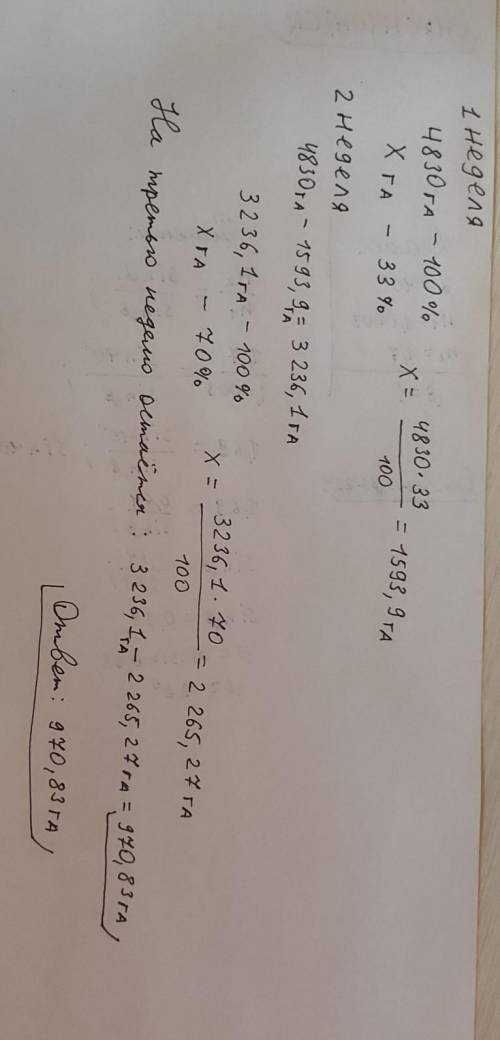 1 неделя
4830 га – 100%
х га – 33%
х = 4830 · 33 / 100 = 1593,9 га
2 неделя
4830 га – 1593,9 га = 3236,1 га
3236,1 га – 100%
х га – 70%
х = 3236,1 · 70 / 100 = 2 265,27 га
На третью неделю остаётся: 3 236,1 га – 2 265,27 га = 970,83 га,
Ответ: 970,83 га,